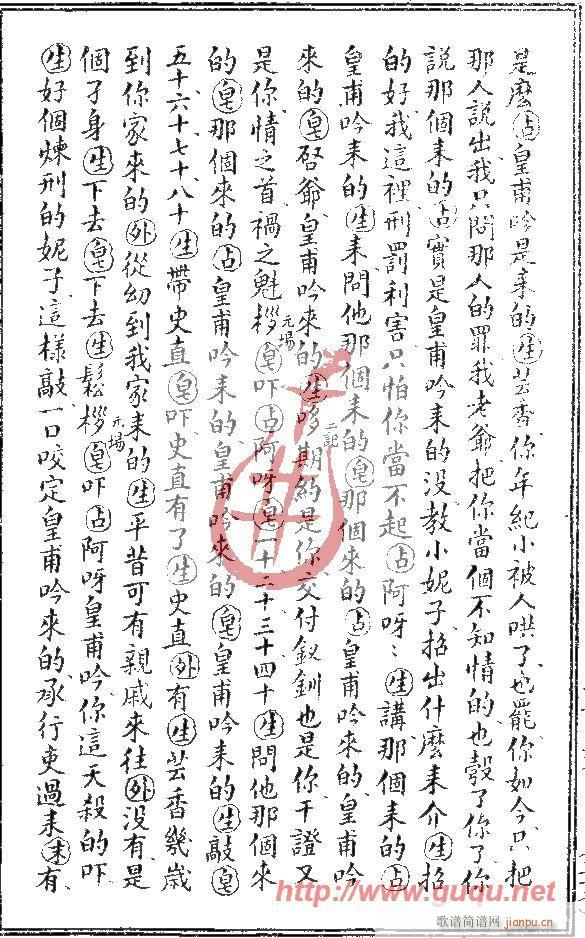 是麼占皇甫吟是来的生芸香你年紀小被人哄了也罷你如今只把
那人說出我只問那人的罪我老爺把你當個不知情的也彀了你了你
說那個来的占實是皇甫吟来的没教小妮子招出什麼来介生招
的好我這裡刑罰利害只怕你當不起占阿呀〻生講那個来的占
皇甫吟来的生来問他那個来的皂那個来的占皇甫吟来的皇甫吟
来的皂啓爺皇甫吟来的生哆期約是你交付釵釧也是你干證又
是你情之首禍之魁桚皂吓占阿呀皂一十二十三十四十生問他那個来
的皂那個来的占皇甫吟来的皇甫吟来的皂皇甫吟来的生敲皂
五十六十七十八十生帶史直皂吓史直有了生史直外有生芸香幾歲
到你家来的外從幼到我家来的生平昔可有親戚来往外没有是
個孑身生下去皂下去生鬆桚皂吓占阿呀皇甫吟你這天殺的吓
生好個煉刑的妮子這樣敲一口咬定皇甫吟来的承行吏過来末有
http://www.guqu.net
歌谱简谱网
jianpu.cn